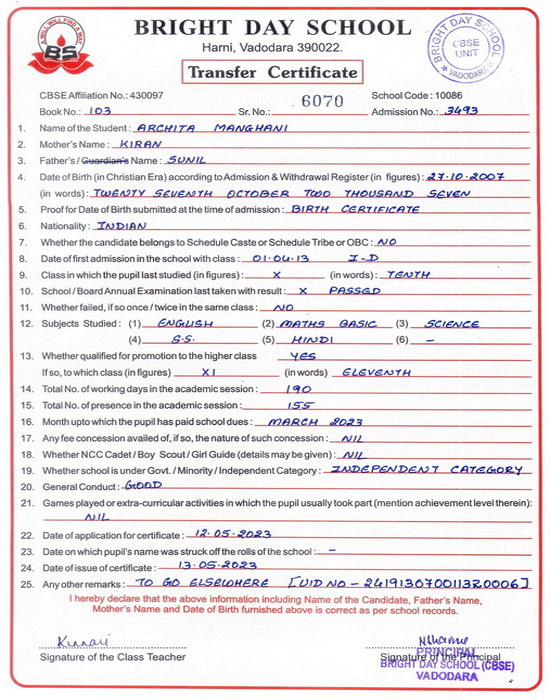 A WILL WILL FIND A WAY
BS
BRIGHT DAY SCHOOL
Harni, Vadodara 390022.
Transfer Certificate
BRIGHT DAY SCHOOL
CBSE
UNIT
VADODARA
CBSE Affiliation No.: 430097 School Code : 10086
Book No.: 103 Sr. No.: 6070 Admission No.: 3493
1. Name of the Student : ARCHITA MANGHANI
2. Mother's Name : KIRAN
3. Father's / Guardian's Name : SUNIL
4. Date of Birth (in Christian Era) according to Admission & Withdrawal Register (in figures) : 27.10.2007
(in words) : TWENTY SEVENTH OCTOBER TWO THOUSAND SEVEN
5. Proof for Date of Birth submitted at the time of admission : BIRTH CERTIFICATE
6. Nationality : INDIAN
7. Whether the candidate belongs to Schedule Caste or Schedule Tribe or OBC : NO
8. Date of first admission in the school with class : 01.04.13 I-D
9. Class in which the pupil last studied (in figures) : X (in words) : TENTH
10. School / Board Annual Examination last taken with result : X PASSED
11. Whether failed, if so once / twice in the same class : NO
12. Subjects Studied : (1) ENGLISH (2) MATHS BASIC (3) SCIENCE
(4) S.S. (5) HINDI (6) –
13. Whether qualified for promotion to the higher class YES
If so, to which class (in figures) XI (in words) ELEVENTH
14. Total No. of working days in the academic session : 190
15. Total No. of presence in the academic session : 155
16. Month upto which the pupil has paid school dues : MARCH 2023
17. Any fee concession availed of, if so, the nature of such concession : NIL
18. Whether NCC Cadet / Boy Scout / Girl Guide (details may be given) : NIL
19. Whether school is under Govt. / Minority / Independent Category : INDEPENDENT CATEGORY
20. General Conduct : GOOD
21. Games played or extra-curricular activities in which the pupil usually took part (mention achievement level therein) :
NIL
22. Date of application for certificate : 12.05.2023
23. Date on which pupil's name was struck off the rolls of the school : –
24. Date of issue of certificate : 13.05.2023
25. Any other remarks : TO GO ELSEWHERE [UID NO - 241913070011320006]
I hereby declare that the above information including Name of the Candidate, Father's Name,
Mother's Name and Date of Birth furnished above is correct as per school records.
Signature of the Class Teacher Signature of the Principal
PRINCIPAL
BRIGHT DAY SCHOOL (CBSE)
VADODARA